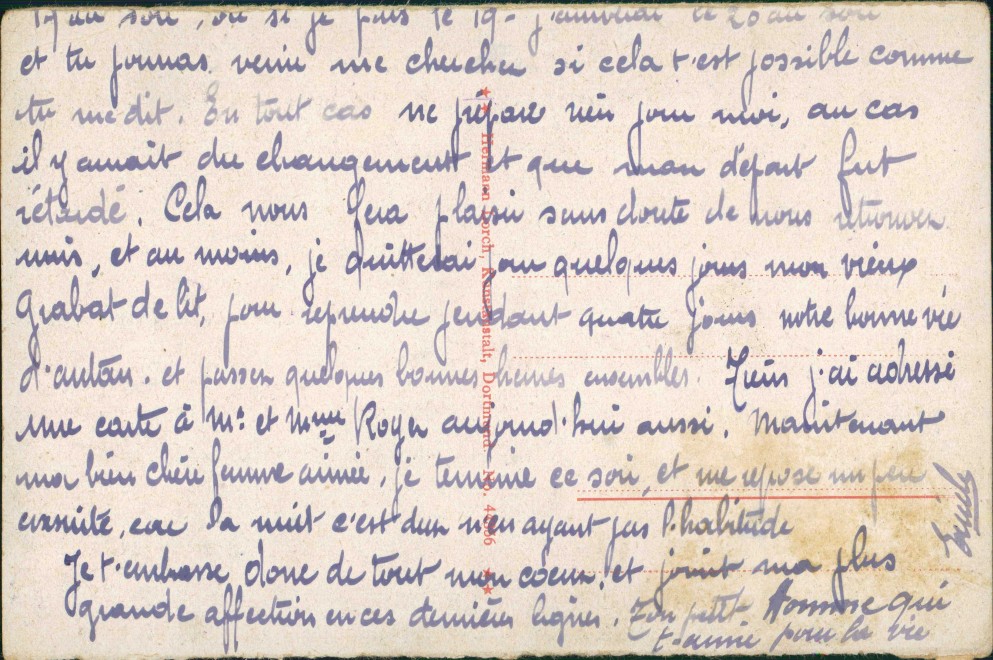 19 au soir, ou si je pars le 19 - j'arriverai le 20 au soir
et tu pourras venir me chercher si cela t'est possible comme
tu me dit. En tout cas ne prépare rien pour moi, au cas
il y aurait du changement et que mon départ fut
retardé. Cela nous fera plaisir sans doute de nous retrouver
unis, et au moins, je quitterai pour quelques jours mon vieux
Grabat de lit, pour reprendre pendant quatre jours notre bonne vie
d'antan. et passer quelques bonnes heures ensembles. Tiens j'ai adressé
une carte à Mr. et Mme Roger aujourd'hui aussi. Maintenant
ma bien chère femme aimée, je termine ce soir, et me repose un peu
ensuite, car la nuit c'est dur n'en ayant pas l'habitude
Je t'embrasse donc de tout mon coeur, et joint ma plus
grande affection en ces dernières lignes. Ton petit Homme qui
t'aime pour la vie
★★ Hermann Lorch, Kunstanstalt, Dortmund No. ★★